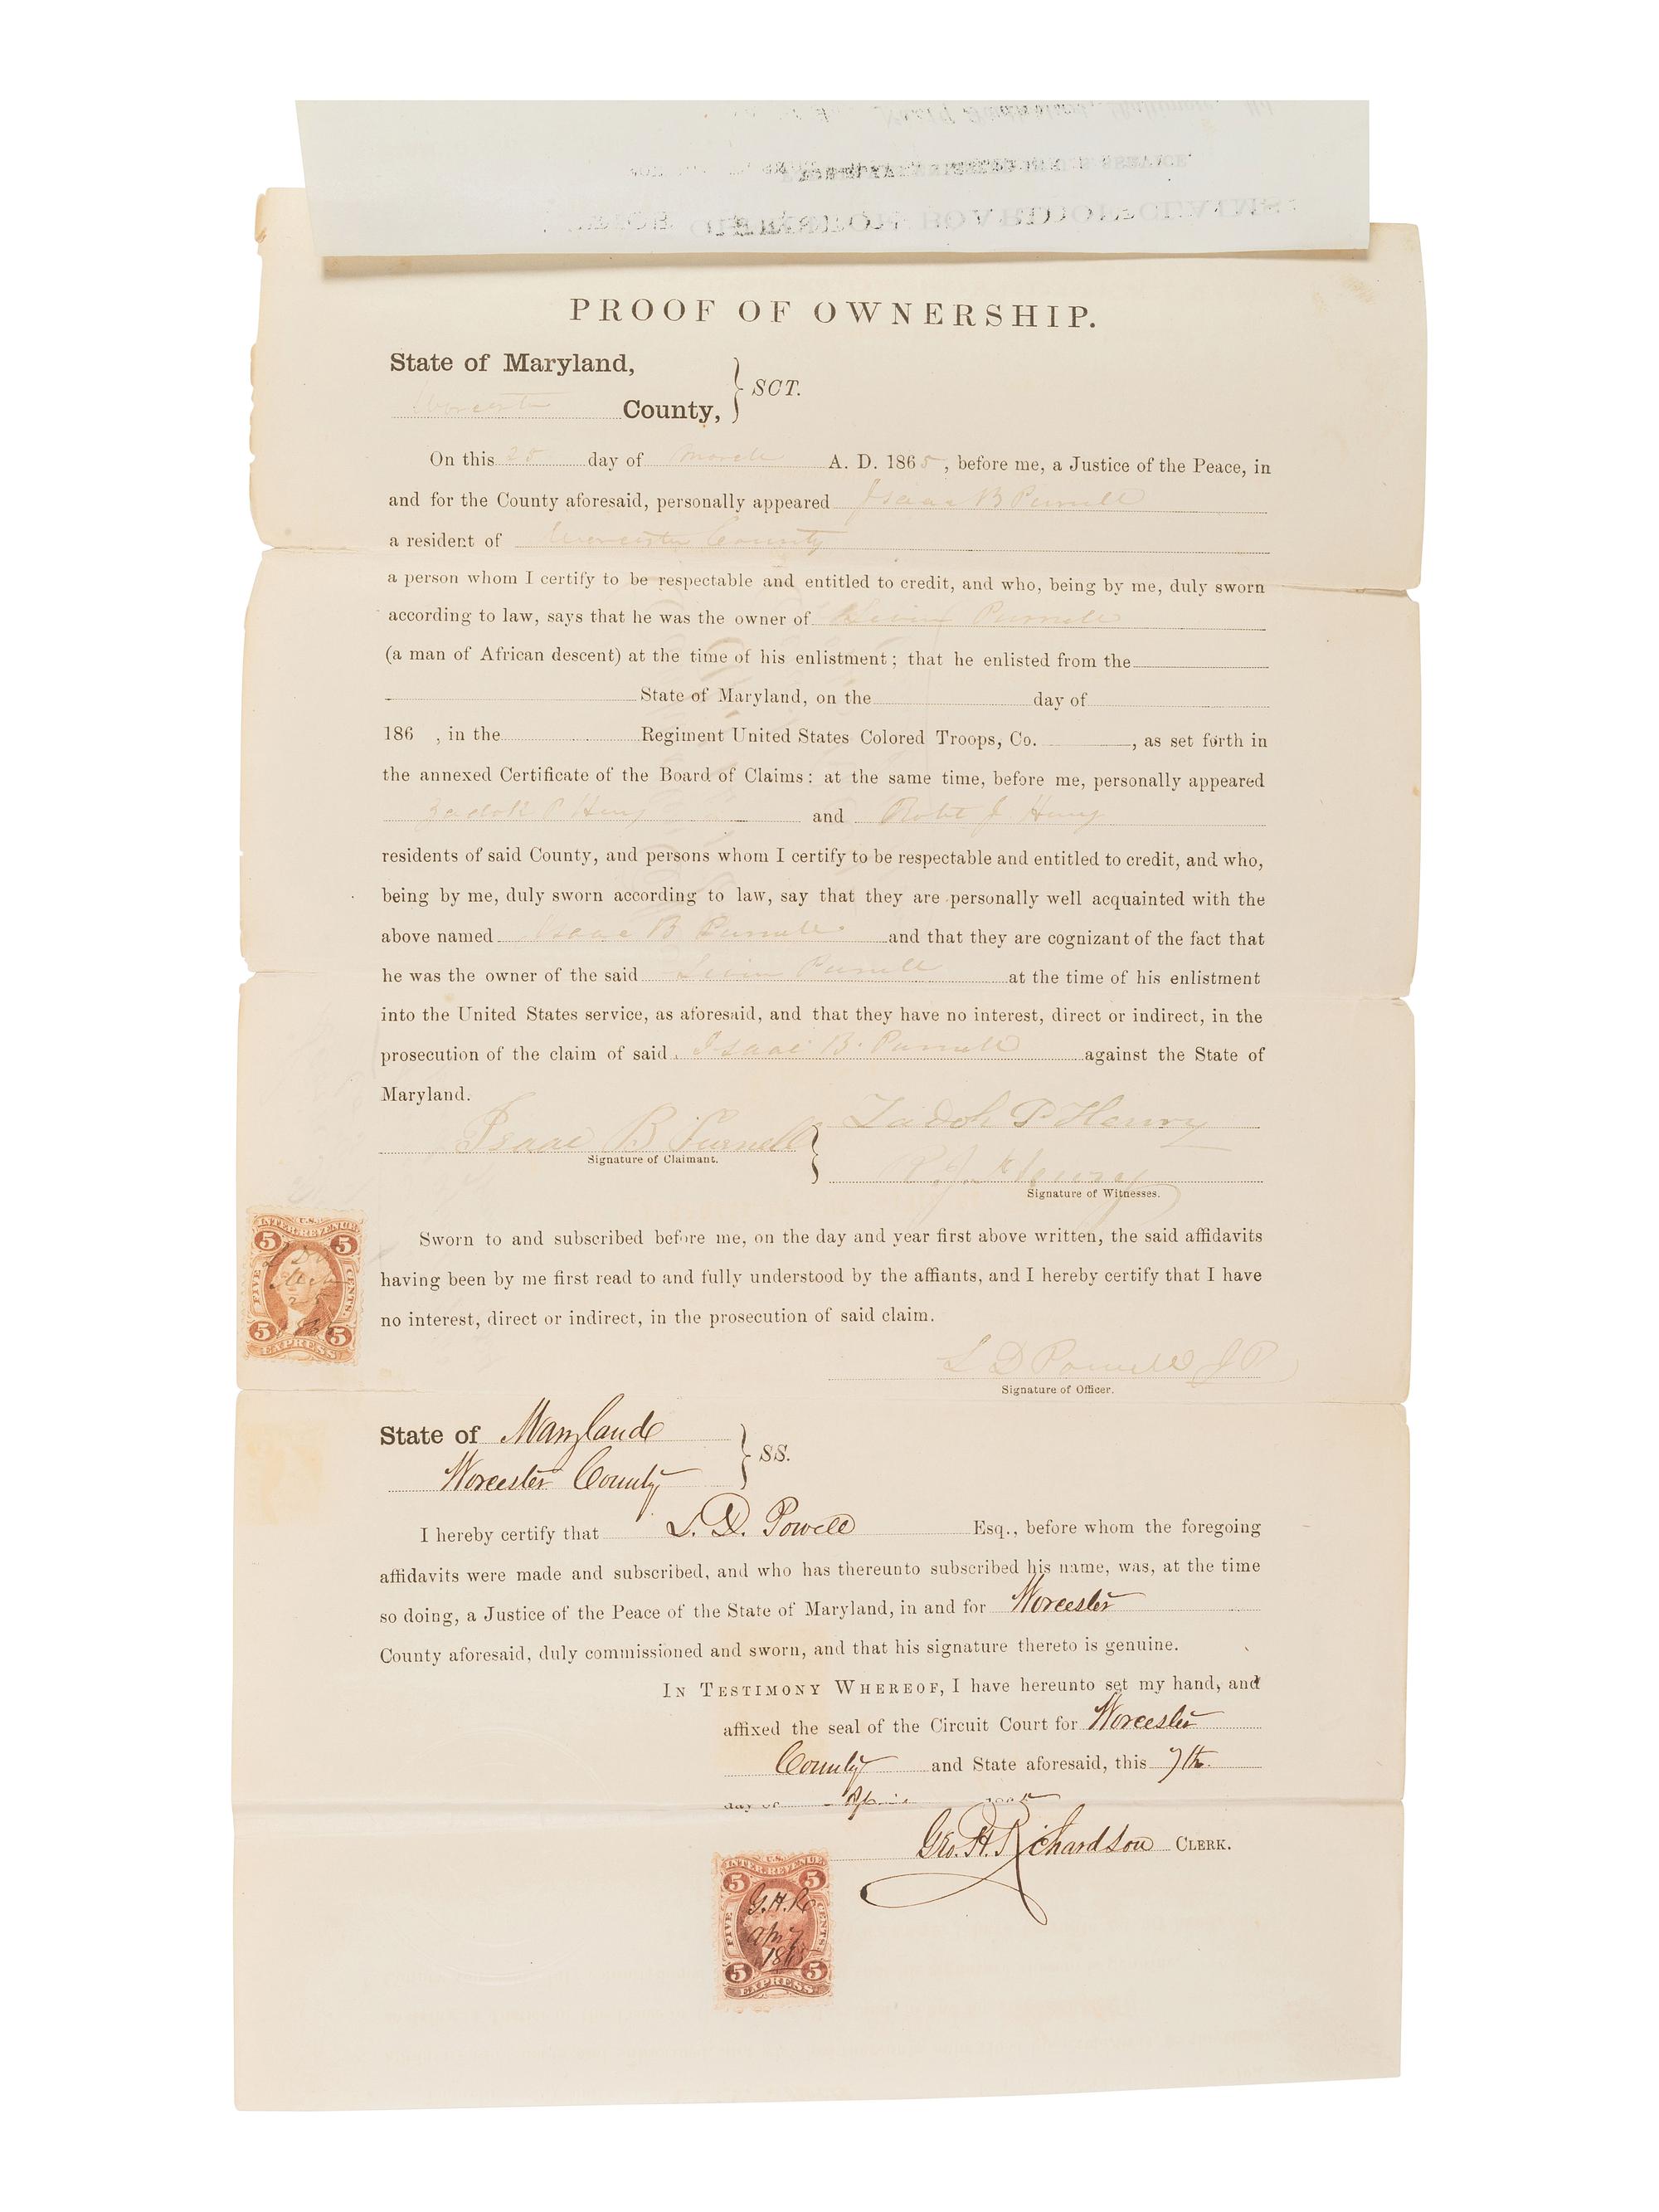 PROOF OF OWNERSHIP.
State of Maryland,
Worcester County, } SCT.
On this 25 day of March A. D. 1865, before me, a Justice of the Peace, in
and for the County aforesaid, personally appeared Isaac B Purnell
a resident of Worcester County
a person whom I certify to be respectable and entitled to credit, and who, being by me, duly sworn
according to law, says that he was the owner of Levin Purnell
(a man of African descent) at the time of his enlistment; that he enlisted from the
State of Maryland, on the day of
186 , in the Regiment United States Colored Troops, Co. , as set forth in
the annexed Certificate of the Board of Claims: at the same time, before me, personally appeared
Zadok P Henry and Robt J Henry
residents of said County, and persons whom I certify to be respectable and entitled to credit, and who,
being by me, duly sworn according to law, say that they are personally well acquainted with the
above named Isaac B Purnell and that they are cognizant of the fact that
he was the owner of the said Levin Purnell at the time of his enlistment
into the United States service, as aforesaid, and that they have no interest, direct or indirect, in the
prosecution of the claim of said Isaac B. Purnell against the State of
Maryland.
Isaac B Purnell } Zadok P Henry
Signature of Claimant.
R J Henry
Signature of Witnesses.
Sworn to and subscribed before me, on the day and year first above written, the said affidavits
having been by me first read to and fully understood by the affiants, and I hereby certify that I have
no interest, direct or indirect, in the prosecution of said claim.
L D Powell J P
Signature of Officer.
U.S.
INTER. REVENUE
5 5
FIVE CENTS.
L D P
Mch
25
5 5
EXPRESS
State of Maryland
Worcester County } SS.
I hereby certify that L. D. Powell Esq., before whom the foregoing
affidavits were made and subscribed, and who has thereunto subscribed his name, was, at the time
so doing, a Justice of the Peace of the State of Maryland, in and for Worcester
County aforesaid, duly commissioned and sworn, and that his signature thereto is genuine.
IN TESTIMONY WHEREOF, I have hereunto set my hand, and
affixed the seal of the Circuit Court for Worcester
County and State aforesaid, this 7th
day of April 1865
Geo. H. Richardson CLERK.
U.S.
INTER. REVENUE
5 5
FIVE CENTS
G. H. R
Apr 7
1865
5 5
EXPRESS